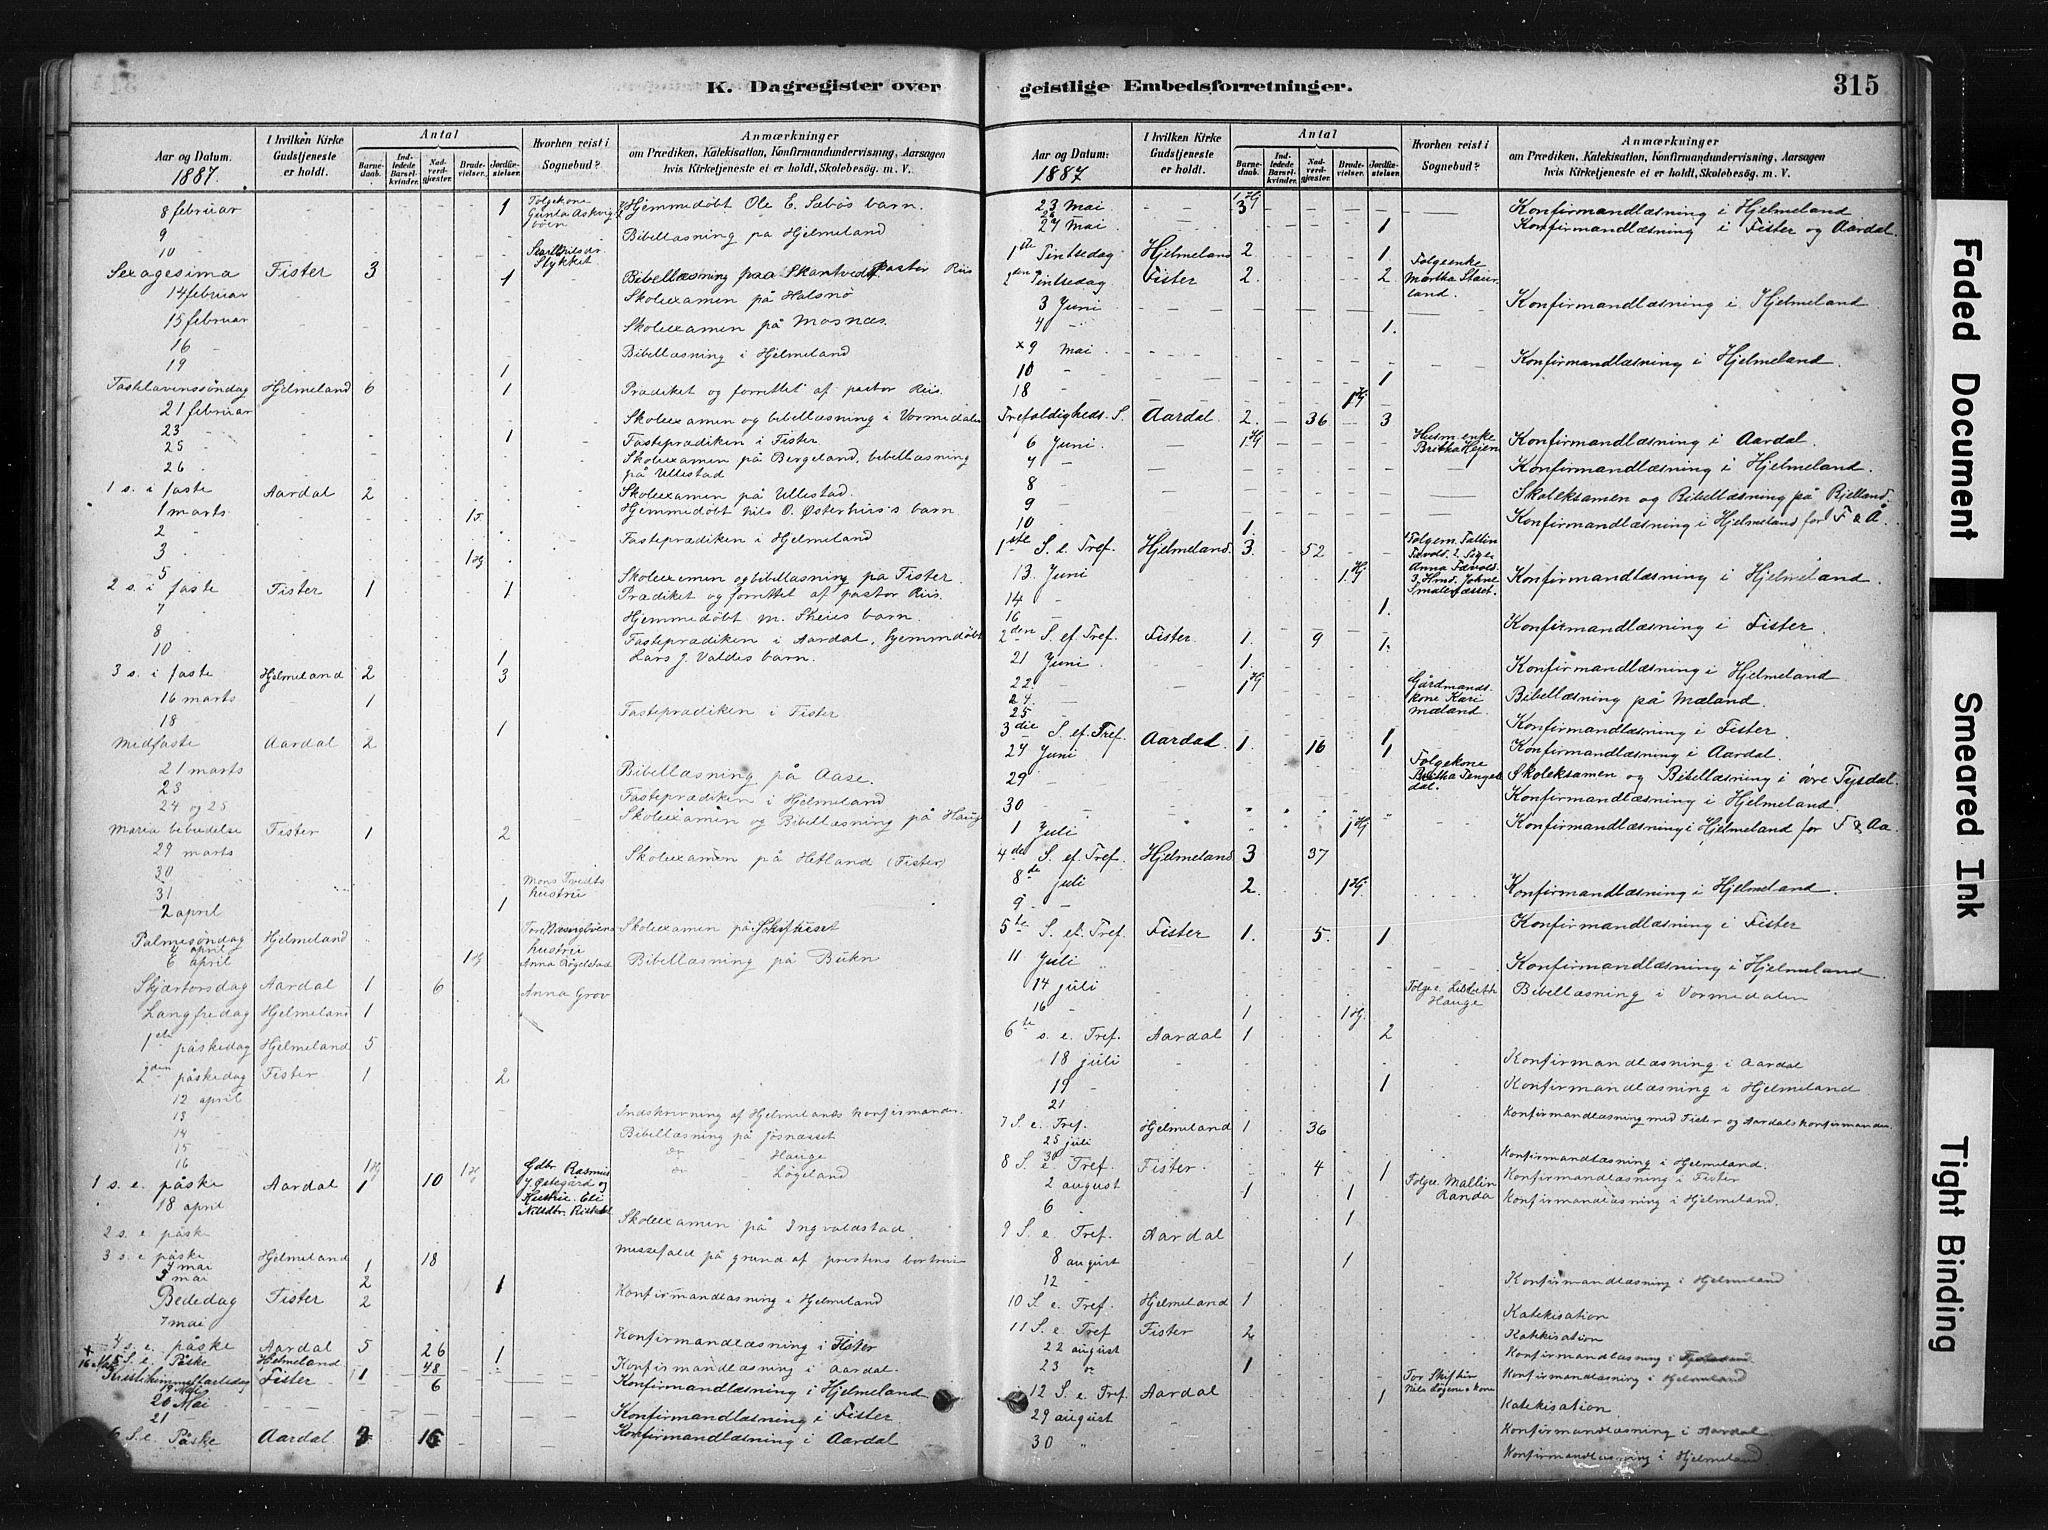 K. Dagregister over
Aar og Datum.
1887.
I hvilken Kirke Gudstjeneste er holdt.
Antal
Barnedaab.
Indledede Barselkvinder.
Nadverdgjæster.
Brudevielser.
Jordfæstelser.
Hvorhen reist i Sognebud?
Anmærkninger
om Prædiken, Katekisation, Konfirmandundervisning, Aarsagen
hvis Kirketjeneste ei er holdt, Skolebesøg. m. V.
8 februar 1 Følgekone Hjemmedøbt Ole E. Sæbøs barn.
9 Bibellæsning på Hjelmeland
10
Sexagesima Fister 3 1 Pastor Riis
14 februar Skoleexamen på Halsnø
15 februar Skoleexamen på Mosnæs.
16 Bibellæsning i Hjelmeland
19 1
Fastelavenssøndag Hjelmeland 6 1 Prædiket og forrettet af pastor Riis.
21 februar Skoleexamen og bibellæsning i Vormedalen
23 1 Fasteprædiken i Fister
25 Skoleexamen på Bergeland, bibellæsning
på Ullestad
26 Skoleexamen på Ullestad.
1 s. i faste Aardal 2 Hjemmedøbt Nils O. Østerhus's barn.
1 marts 1 F.
2 Fasteprædiken i Hjelmeland
3 1 Hj
5 Skoleexamen og bibellæsning på Fister.
2 s. i faste Fister 1 1 Prædiket og forrettet af pastor Riis.
7 Hjemmedøbt M. Skeies barn.
8 Fasteprædiken i Aardal, hjemmedøbt
10 1 Lars J. Valdes barn.
3 s. i faste Hjelmeland 2 3
16 marts 1 Fasteprædiken i Fister.
18 1
Midfaste Aardal 2
21 marts Bibellæsning på Aase.
23 Fasteprædiken i Hjelmeland
24 og 25 Skoleexamen og Bibellæsning på Hauge
Maria bebudelse Fister 1 2
29 marts Skoleexamen på Hetland (Fister)
30
31 Mons Tvedts hustrue
2 april 1
Palmesøndag Hjelmeland hustrue Skoleexamen på
4 april
6 april 1 Hj Anna Bibellæsning på Bukn
Skjærtorsdag Aardal 1 6 Anna Grov
Langfredag Hjelmeland 1
1ste påskedag Hjelmeland 5
2den påskedag Fister 1 2
12 april
13 Indskrivning af Hjelmelands konfirmander.
14 Bibellæsning på Jøsnæsset
15 do - Hauge
16 1 Hj 1 Hj do - Løgeland
1 s. e. påske Aardal 1 10 Gdbr Rasmus J. Østegård og Hustrue Eli
18 april Skoleexamen på Ingvaldstad.
2 s. e påske Messefald på grund af prestens bortreise
3 s. e påske Hjelmeland 1 18
4 mai
5 mai 2 1
Bededag Fister 2 Konfirmandlæsning i Hjelmeland
7 mai
4 s. e. påske Aardal 5 26 Konfirmandlæsning i Fister
5 S. e. Påske Hjelmeland 48 1 Konfirmandlæsning i Aardal.
Kristi himmelfartsdag Fister 1 6 Konfirmandlæsning i Hjelmeland
19 Mai
20 Mai Konfirmandlæsning i Fister
21
6 S. e. Påske Aardal 3 15 Konfirmandlæsning i Aardal
geistlige Embedsforretninger. 315
Aar og Datum:
1887
I hvilken Kirke Gudstjeneste er holdt.
Antal
Barnedaab.
Indledede Barselkvinder.
Nadverdgjæster.
Brudevielser.
Jordfæstelser.
Hvorhen reist i Sognebud?
Anmærkninger
om Prædiken, Katekisation, Konfirmandundervisning, Aarsagen
hvis Kirketjeneste ei er holdt, Skolebesøg. m. V.
23 Mai 3 Konfirmandlæsning i Hjelmeland
Mai 1 Konfirmandlæsning i Fister og Aardal.
1ste Pintsedag Hjelmeland 2 1
2den Pintsedag Fister 2. 2 Følgeenke Martha Staurland.
3 Juni Konfirmandlæsning i Hjelmeland
4 1.
x 9 Mai Konfirmandlæsning i Hjelmeland.
10 1
18 1 Hj
Trefoldigheds. S. Aardal 2. 36 3
6 Juni 1 Hj Husm. enke Britha Konfirmandlæsning i Aardal.
7 Konfirmandlæsning i Hjelmeland.
8 Skoleksamen og Bibellæsning på Rjelland.
9 Konfirmandlæsning i Hjelmeland for F & Å.
10 1.
1ste S. e. Tref. Hjelmeland. 3. 52
13. Juni 1. Hj Konfirmandlæsning i Hjelmeland
14
16 1. Konfirmandlæsning i Fister.
2den S. ef. Tref. Fister. 1. 9 1.
21 Juni 1. Konfirmandlæsning i Hjelmeland
22. 1 Hj Gårdmandskone Kari Mæland. Bibellæsning på Mæland.
24.
25 Konfirmandlæsning i Fister.
3die S. ef. Tref. Aardal. 1. 16 1 Konfirmandlæsning i Aardal.
27 Juni 1 Følgekone Britha Skoleksamen og Bibellæsning i øvre Tysdal.
29 Konfirmandlæsning i Hjelmeland.
30
1 Juli 1 Hj Konfirmandlæsning i Hjelmeland for F & Aa.
4de S. ef. Tref. Hjelmeland 3 37
8de juli 2. 1 Hj. Konfirmandlæsning i Hjelmeland.
9
5te S. ef. Tref. Fister 1. 5. 1 Konfirmandlæsning i Fister
11 Juli Konfirmandlæsning i Hjelmeland.
14 juli Hauge Bibellæsning i Vormedalen
16 1 1 Hj.
6te s. e. Tref. Aardal 1 2
18 juli Konfirmandlæsning i Aardal
19 1 Konfirmandlæsning i Hjelmeland
21 Konfirmandlæsning med Fister og Aardals konfirmander.
7 S. e. Tref. Hjelmeland 1 36
25 juli Konfirmandlæsning i Hjelmeland.
30
8 S. e Tref. Fister. 4 1 Konfirmandlæsning i Fister
2 august 1 1 Følgee. Mallin Randa Konfirmandlæsning i Hjelmeland.
6 1
9 S. e. Tref. Aardal
8 august 1
12 Konfirmandlæsning i Hjelmeland
10 S. e. Tref. Hjelmeland 1 Katekisation
11 S. e Tref Fister 2 Katekisation
22 august Konfirmandlæsning i
23 do 1 Konfirmandlæsning i Hjelmeland
12 S. e Tref. Aardal 1 Katekisation.
29 august Konfirmandlæsning i Aardal
30 Konfirmandlæsning i Hjelmeland.
Faded Document
Smeared Ink
Tight Binding